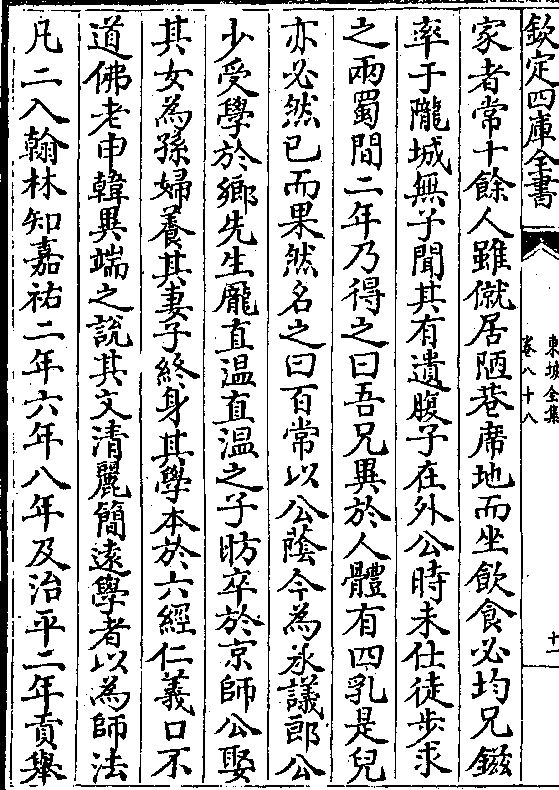 欽定四庫全書
東坡全集
卷八十八
十一
家者常十餘人雖僦居陋巷席地而坐飲食必均兄鎡
率于隴城無子聞其有遺腹子在外公時未仕徒步求
之兩蜀間二年乃得之曰吾兄異於人體有四乳是兒
亦必然已而果然名之曰百常以公蔭今為承議郎公
少受學於鄉先生龎直温直温之子昉卒於京師公娶
其女為孫婦養其妻子終身其學本於六經仁義口不
道佛老申韓異端之說其文清麗簡遠學者以為師法
凡二入翰林知嘉祐二年六年八年及治平二年貢舉